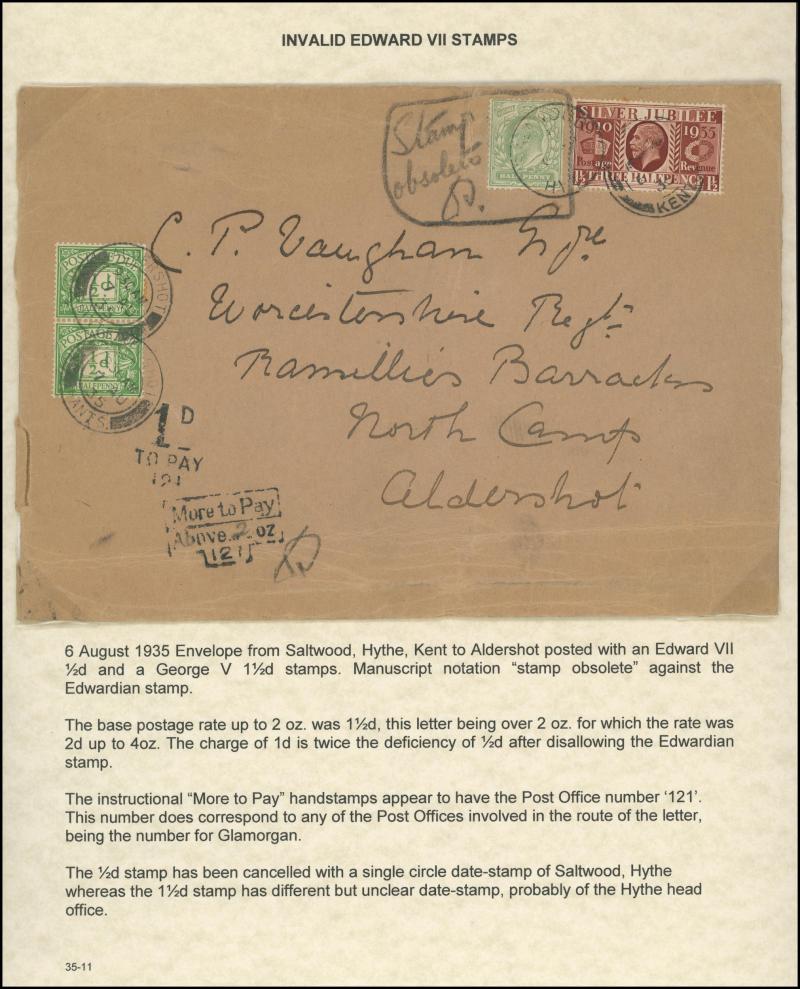 INVALID EDWARD VII STAMPS
Stamp
obsolete
HALFPENNY
SILVER JUBILEE
1910 1935
Postage Revenue
1½ THREE HALFPENCE 1½
KENT
C. P. Vaughan Esqre
Worcestershire Regt
Ramillies Barracks
North Camp
Aldershot
POSTAGE DUE
½d
HALFPENNY
POSTAGE DUE
½d
HALFPENNY
HANTS.
1D
TO PAY
121
More to Pay
Above 2 oz
121
6 August 1935 Envelope from Saltwood, Hythe, Kent to Aldershot posted with an Edward VII
½d and a George V 1½d stamps. Manuscript notation “stamp obsolete” against the
Edwardian stamp.
The base postage rate up to 2 oz. was 1½d, this letter being over 2 oz. for which the rate was
2d up to 4oz. The charge of 1d is twice the deficiency of ½d after disallowing the Edwardian
stamp.
The instructional “More to Pay” handstamps appear to have the Post Office number ‘121’.
This number does correspond to any of the Post Offices involved in the route of the letter,
being the number for Glamorgan.
The ½d stamp has been cancelled with a single circle date-stamp of Saltwood, Hythe
whereas the 1½d stamp has different but unclear date-stamp, probably of the Hythe head
office.
35-11